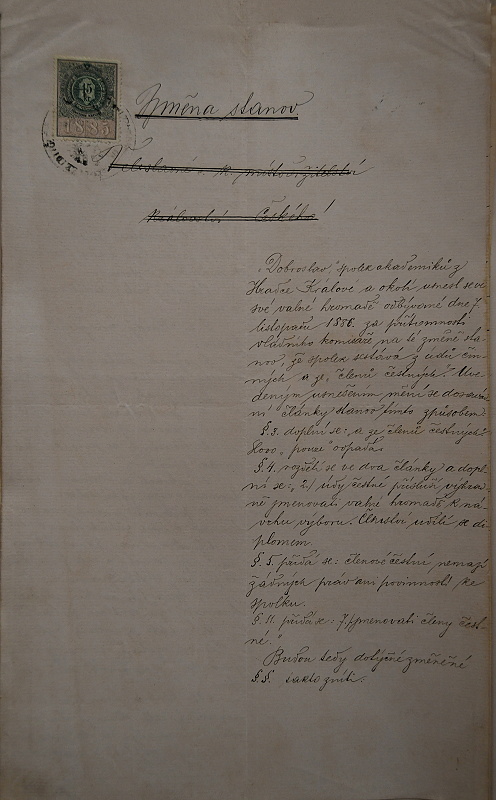 15
1885
Změna stanov
Veleslavné c. k. místodržitelství
Království Českého!
„Dobroslav“, spolek akademiků z
Hradce Králové a okolí usnesl se ve
své valné hromadě odbývané dne 7.
listopadu 1886. za přítomnosti
vládního komisaře na té změně sta-
nov, že spolek sestává z údů čin-
ných a ze „členů čestných“. Uve-
deným usnešením mění se dosavad-
ní články stanov tímto způsobem:
§. 3. doplní se: a ze členů čestných.
slovo „pouze“ odpadá.
§. 4. rozdělí se ve dva články a dopl-
ní se: „2./ údy čestné přísluší výhrad-
ně jmenovati valné hromadě k ná-
vrhu výboru. Členství udílí se di-
plomem.
§. 5. přidá se: členové čestní nemají
žádných práv ani povinností ke
spolku.
§. 11. přidá se: 7./ jmenovati členy čest-
né.“
Budou tedy dotyčné změněné
§.§. takto zníti: